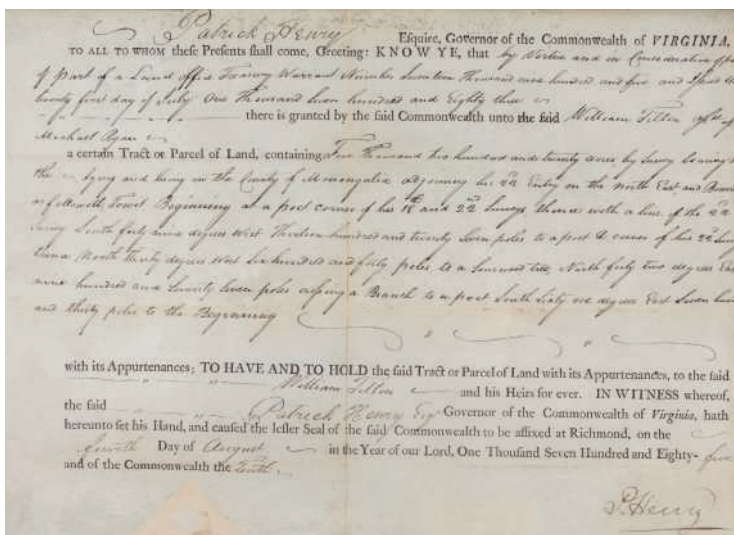 Patrick Henry Esquire, Governor of the Commonwealth of VIRGINIA,
TO ALL TO WHOM theſe Preſents ſhall come, Greeting: KNOW YE, that by Virtue and in Consideration of
of part of a Land office Treasury Warrant Number Seventeen thousand one hundred and five and Issued the
twenty first day of July One Thousand Seven hundred and Eighty three
there is granted by the ſaid Commonwealth unto the ſaid William Tilton
Michael Ryan
a certain Tract or Parcel of Land, containing thousand two hundred and twenty acres by Survey bearing
the lying and being in the County of Monongalia adjoining his 22d Entry on the North East and
as followeth Towit Beginning at a post corner of his and 22d Surveys thence with a line of the 22d
Survey South forty nine degrees West Thirteen hundred and twenty Seven poles to a post a corner of his 22d Survey
thence North thirty degrees West Six hundred and fifty poles to a Sourwood tree, North forty two degrees East
nine hundred and Seventy Seven poles crossing a Branch to a post South Sixty one degrees East Seven
and thirty poles to the Beginning
with its Appurtenances; TO HAVE AND TO HOLD the ſaid Tract or Parcel of Land with its Appurtenances, to the ſaid
William Tilton and his Heirs for ever. IN WITNESS whereof,
the ſaid Patrick Henry Esqr Governor of the Commonwealth of Virginia, hath
hereunto ſet his Hand, and cauſed the leſſer Seal of the ſaid Commonwealth to be affixed at Richmond, on the
fourth Day of August in the Year of our Lord, One Thouſand Seven Hundred and Eighty- five
and of the Commonwealth the Tenth
P. Henry